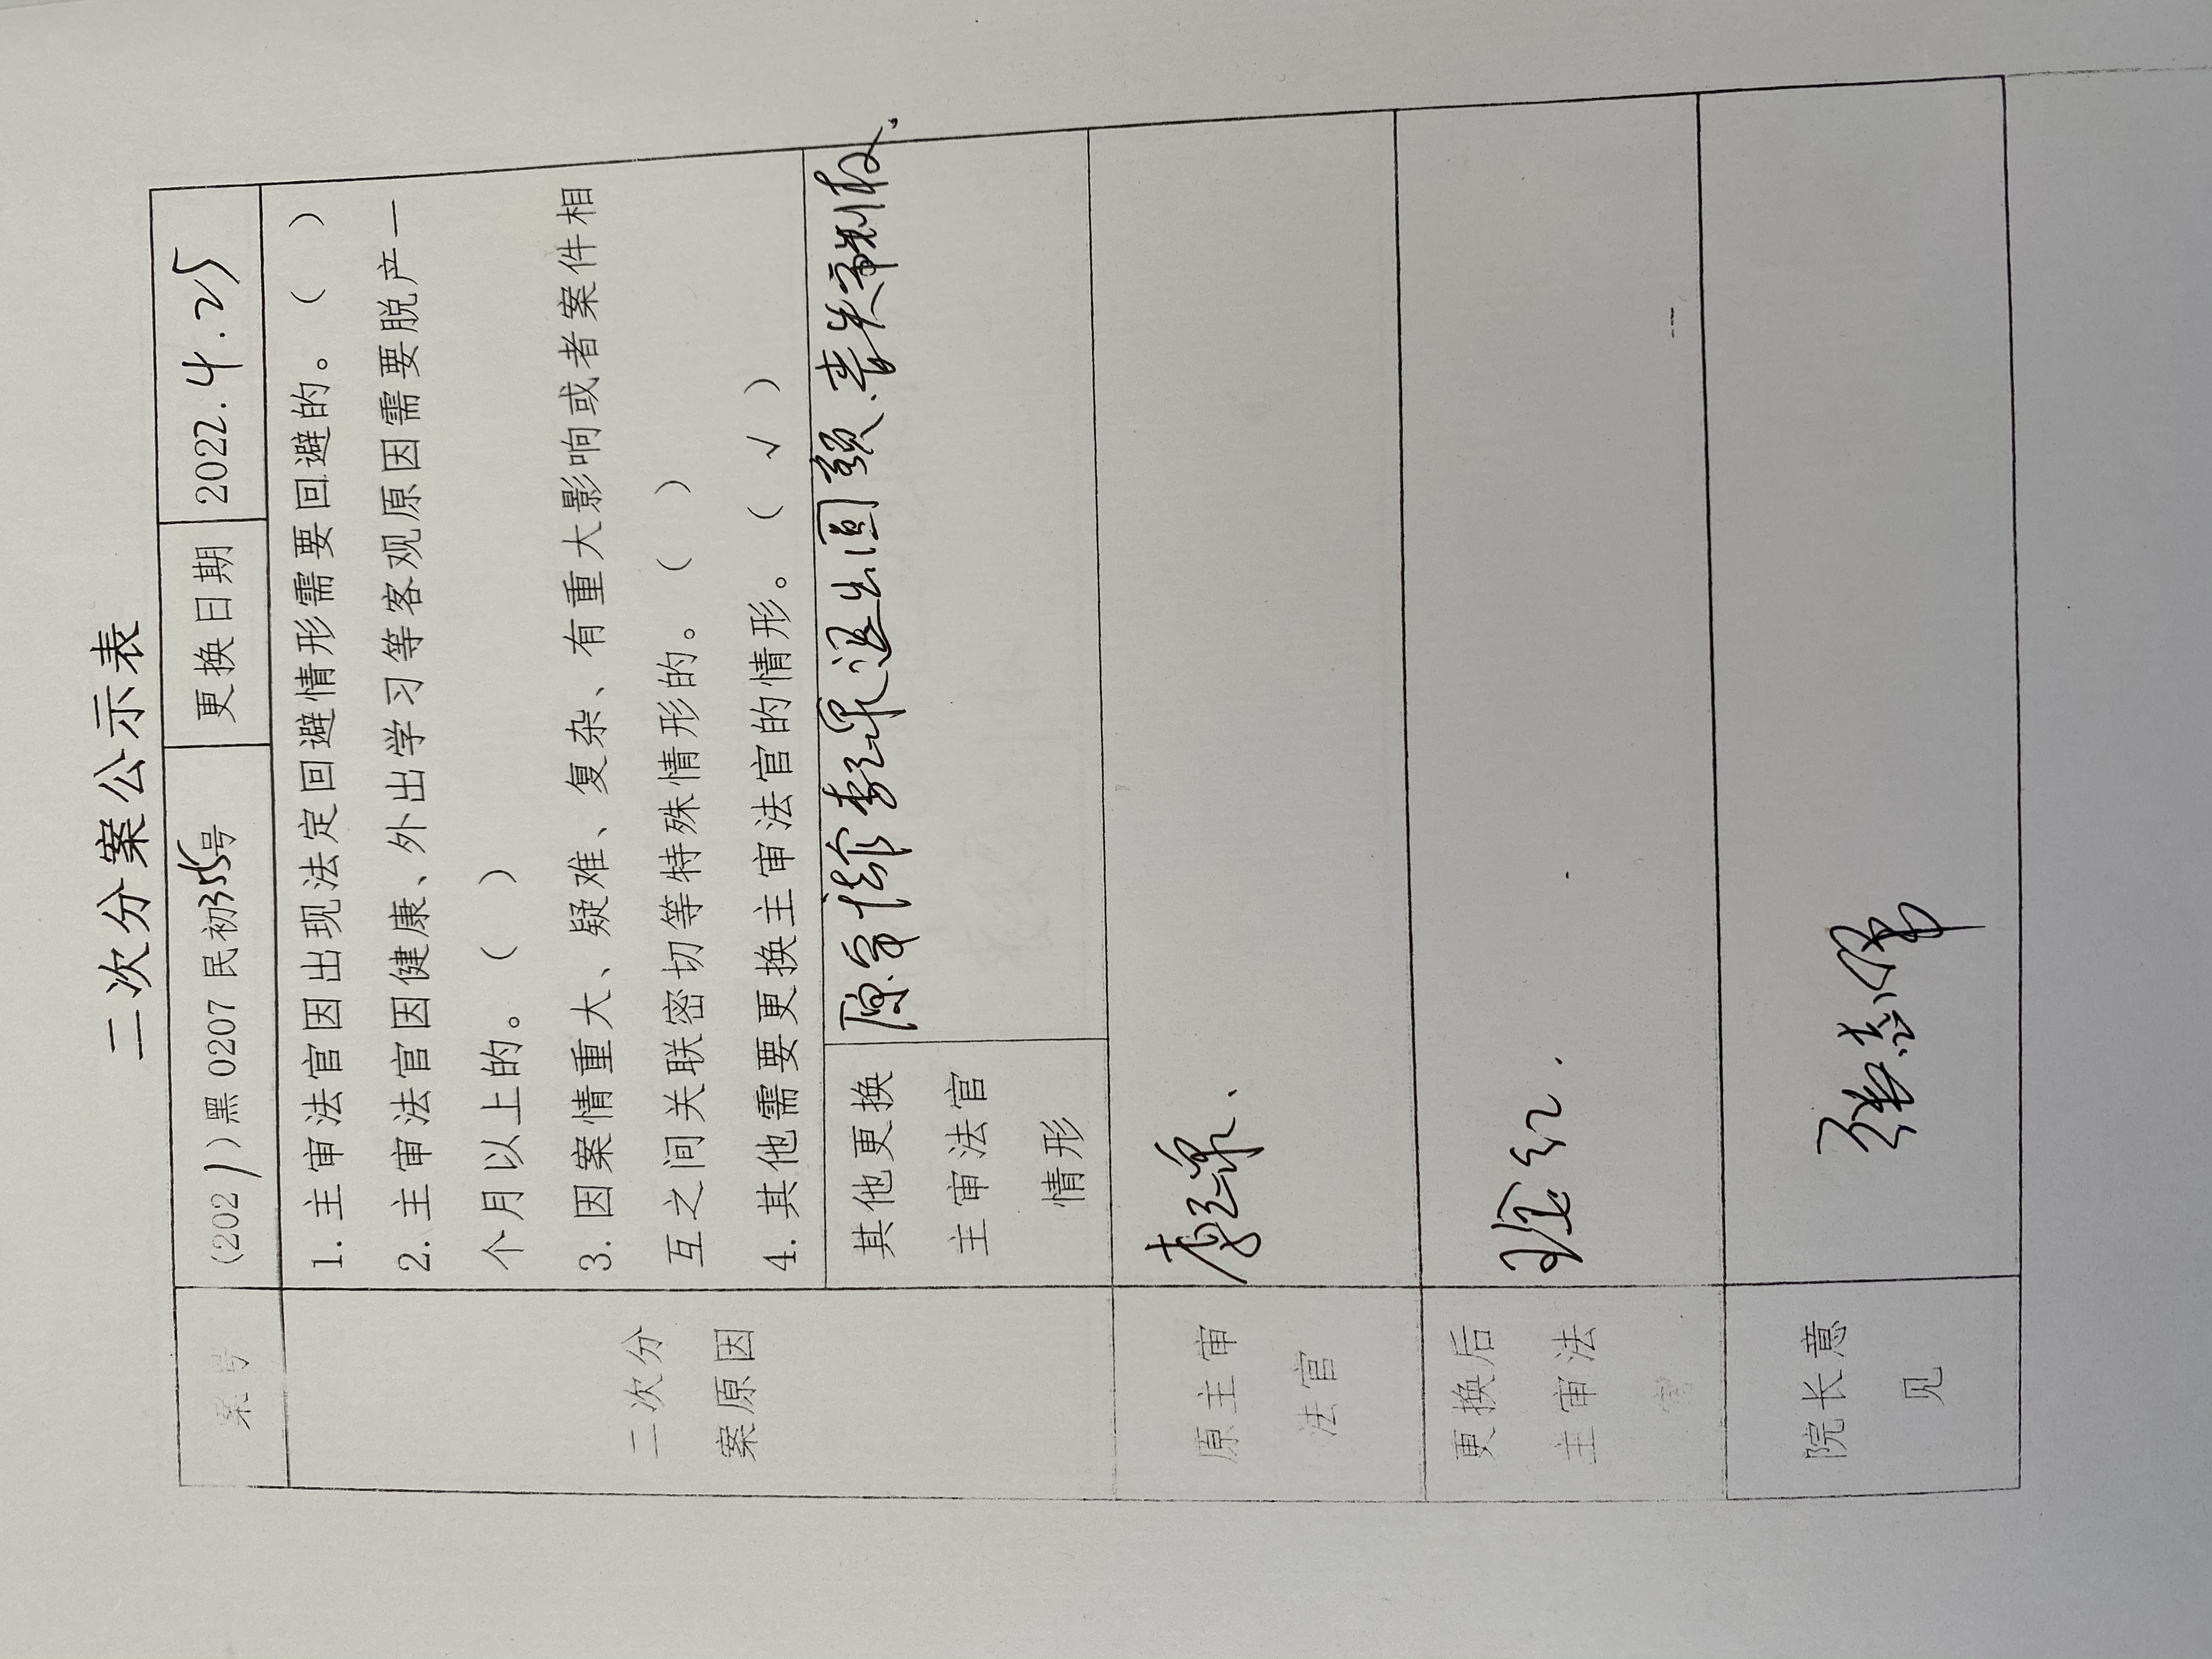 二次分案公示表
案号 (2021)黑0207民初355号 更换日期 2022.4.25
二次分
案原因
1.主审法官因出现法定回避情形需要回避的。( )
2.主审法官因健康、外出学习等客观原因需要脱产一
个月以上的。( )
3.因案情重大、疑难、复杂、有重大影响或者案件相
互之间关联密切等特殊情形的。( )
4.其他需要更换主审法官的情形。( √ )
其他更换
主审法官
情形
原审法官李翠退出员额.丧失审判权.
原主审
法官
李翠.
更换后
主审法
官
红.
院长意
见
张志